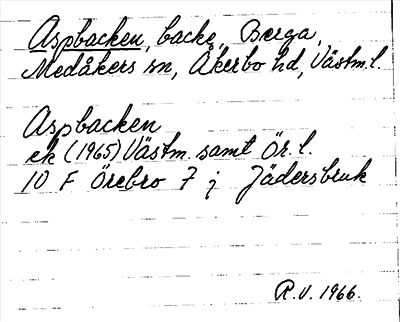 Aspbacken, backe, Berga,
Medåkers sn, Åkerbo hd, Västm. l.
Aspbacken
ek (1965) Västm. samt Ör. l.
10 F Örebro 7 j Jädersbruk
R.V. 1966.